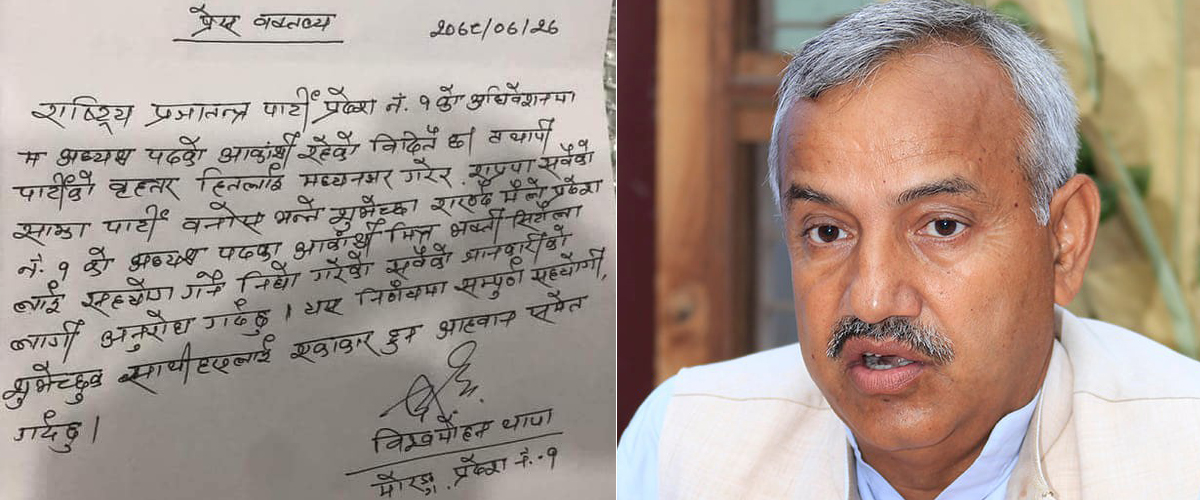 प्रेस वक्तव्य
२०७८/०८/२८
राष्ट्रिय प्रजातन्त्र पार्टी प्रदेश नं. १ को अधिवेशनमा
म अध्यक्ष पदको आकांक्षी रहेको विदितै छ। तथापी
पार्टीको वृहत्तर हितलाई मध्यनजर गरेर, राप्रपा सबैको
साझा पार्टी बनोस भन्ने शुभेच्छा राख्दै मैले प्रदेश
नं. १ को अध्यक्ष पदका आकांक्षी मित्र भक्ती सिटौला
लाई सहयोग गर्ने निधो गरेको सबैको जानकारीको
लागी अनुरोध गर्दछु । यस निर्णयमा सम्पूर्ण सहयोगी,
शुभेच्छुक साथीहरूलाई एकाकार हुन आहवान समेत
गर्दछु ।
विश्वमोहन थापा
मोरङ्ग, प्रदेश नं.-१